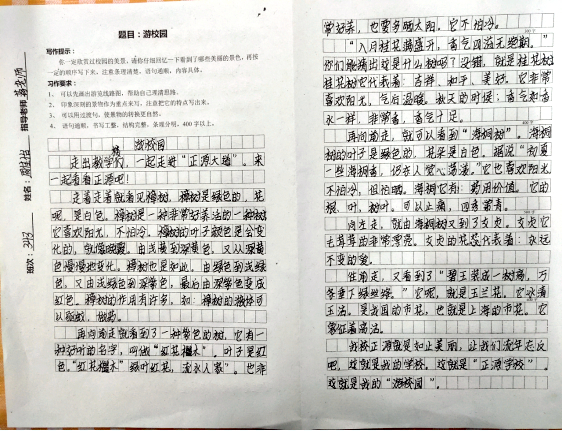 题目：游校园
写作提示：
你一定欣赏过校园的美景，请你仔细回忆一下看到了哪些美丽的景色，再按
一定的顺序写下来。注意条理清楚，语句通顺，内容具体。
习作要求：
1、可以先画出游览线路图，帮助自己理清思路。
2、印象深刻的景物作为重点来写，注意把它的特点写出来。
3、可以用过渡句，使景物的转换更自然。
4、语句通顺，书写工整，结构完整，条理分明。400字以上。
班级：
姓名：
指导老师：
游校园
走出教学们，一起走进“正源大陆”。来
一起看看正源吧！
走着走着就看见樟树，樟树是绿色的，花
呢，是白色。樟树是一种非常好养活的一种树，
它喜欢阳光，不怕冷。樟树的叶子颜色是会变
化的，就像晚霞。由浅黄到深黄色，又从深黄
色慢慢地变化。樟树也是如此，由绿色到浅绿
色，又由浅绿色到深紫色，最后由深紫色变成
红色。樟树的作用有许多，如：樟树的
可以驱蚊，做药。
再向前走就看到了一种紫色的树，它有一
种好听的名字，叫做“红花檵木”。叶子是红
色。“红花檵木”绿叶红花，流水人家”。也非
常好养，也要多晒太阳。它不怕冷。
“八月桂花满盛开，香气四溢无绝期。”
你们能猜出这是什么树吗？没错，就是桂花树
桂花树它代表着：吉祥、和平、美好。它非常
喜欢阳光，气候温暖。秋天的时候；香气和香
水一样，非常香，香气十足。
再向前走，就可以看到“海桐树”。海桐
树的叶子是绿色的，花朵是白色。据说“初夏
一些海桐香，仿若人觉心荡漾。”它也喜欢阳光
不怕冷，但怕晒。海桐它有：药用价值，它的
根、叶、树叶。可以止痛，四季常青。
向左走，就由海桐树又到了女贞。女贞它
毛茸茸的非常漂亮。女贞的花蕊代表着：永远
不变的爱。
往前走，又看到了“碧玉装成一树高，万
条垂下绿丝绦。”它呢，就是玉兰花。它
玉洁。是我国的市花，也就是上海的市花。它
象征着高洁。
我校正源就是如此美丽，让我们流年忘返
吧，这就是我的学校。这就是“正源学校”。
这就是我的“游校园”。